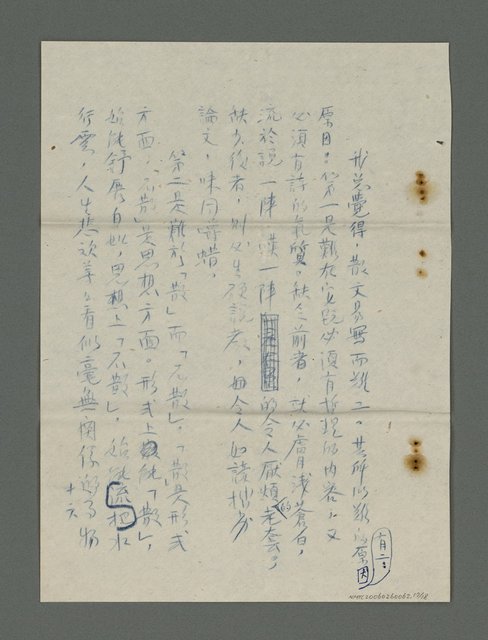 我总覺得散文易寫而難工。其所以難的原因有二:
原因。第一是難在它既必須有哲理的內容,又
必須有詩的氣質。缺乏前者,就必膚淺蒼白,
流於說一陣、嘆一陣的令人厭煩的老套。
缺少後者,則必生硬說教,每令人如讀枯燥
論文,味同嚼蠟。
第二是難於「散」而「不散」。「散」是形式
方面,「不散」是思想方面。形式上能「散」,
始能舒展自如,思想上「不散」,始能
行雲,人生悲歡等等看似毫無關係的事物
十六
NMTL20060260062.17/18